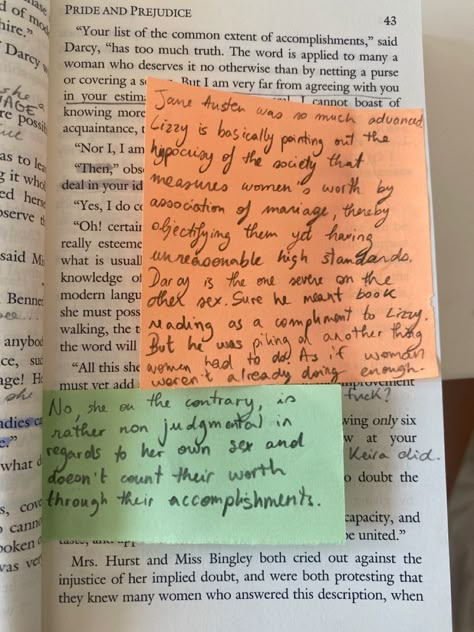 of mod
hire.”
Darcy
she
AGE"
as to
said
anybod
she
what
cannot
was
PRIDE AND PREJUDICE
43
“Your list of the common extent of accomplishments,” said
Darcy, “has too much truth. The word is applied to many a
woman who deserves it no otherwise than by netting a purse
or covering a But I am very far from agreeing with you
in your I cannot boast of
knowing more
acquaintance,
“Nor I, I am
“Then,”
deal in your
“Yes, I do
“Oh!
really
what is
knowledge of
modern
she must
walking, the
the word will
“All this she
must yet add improvement
Jane Austen was so much advanced.
Lizzy is basically pointing out the
hypocrisy of the society that
measures women's worth by
association of mariage, thereby
objectifying them yet having
unreasonable high standards.
Darcy is the one severe on the
other sex. Sure he meant book
reading as a compliment to Lizzy.
But he was piling on another thing
women had to do. As if woman
weren't already doing enough.
fuck?
No, she on the contrary, is
rather non judgmental in
regards to her own sex and
doesn't count their worth
through their accomplishments.
only six
at your
Keira did.
to doubt the
capacity, and
be united.”
Mrs. Hurst and Miss Bingley both cried out against the
injustice of her implied doubt, and were both protesting that
they knew many women who answered this description, when